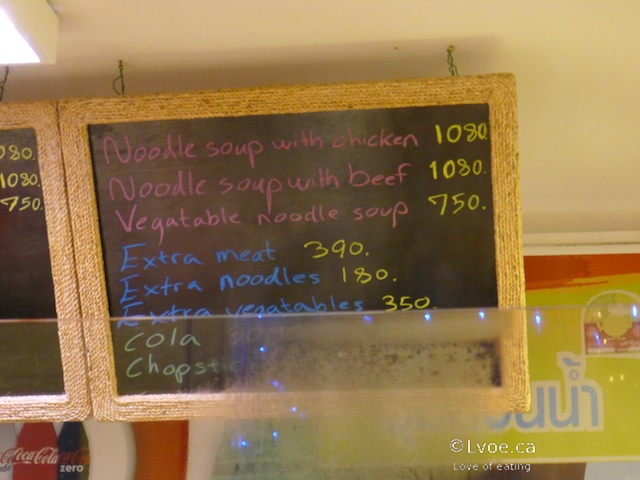 080.
1080.
750.
Noodle soup with chicken 1080.
Noodle soup with beef 1080.
Vegatable noodle soup 750.
Extra meat 390.
Extra noodles 180.
Extra vegatables 350.
Cola
Chopsti
Coca-Cola
zero
นน้ำ
©Lvoe.ca
Love of eating